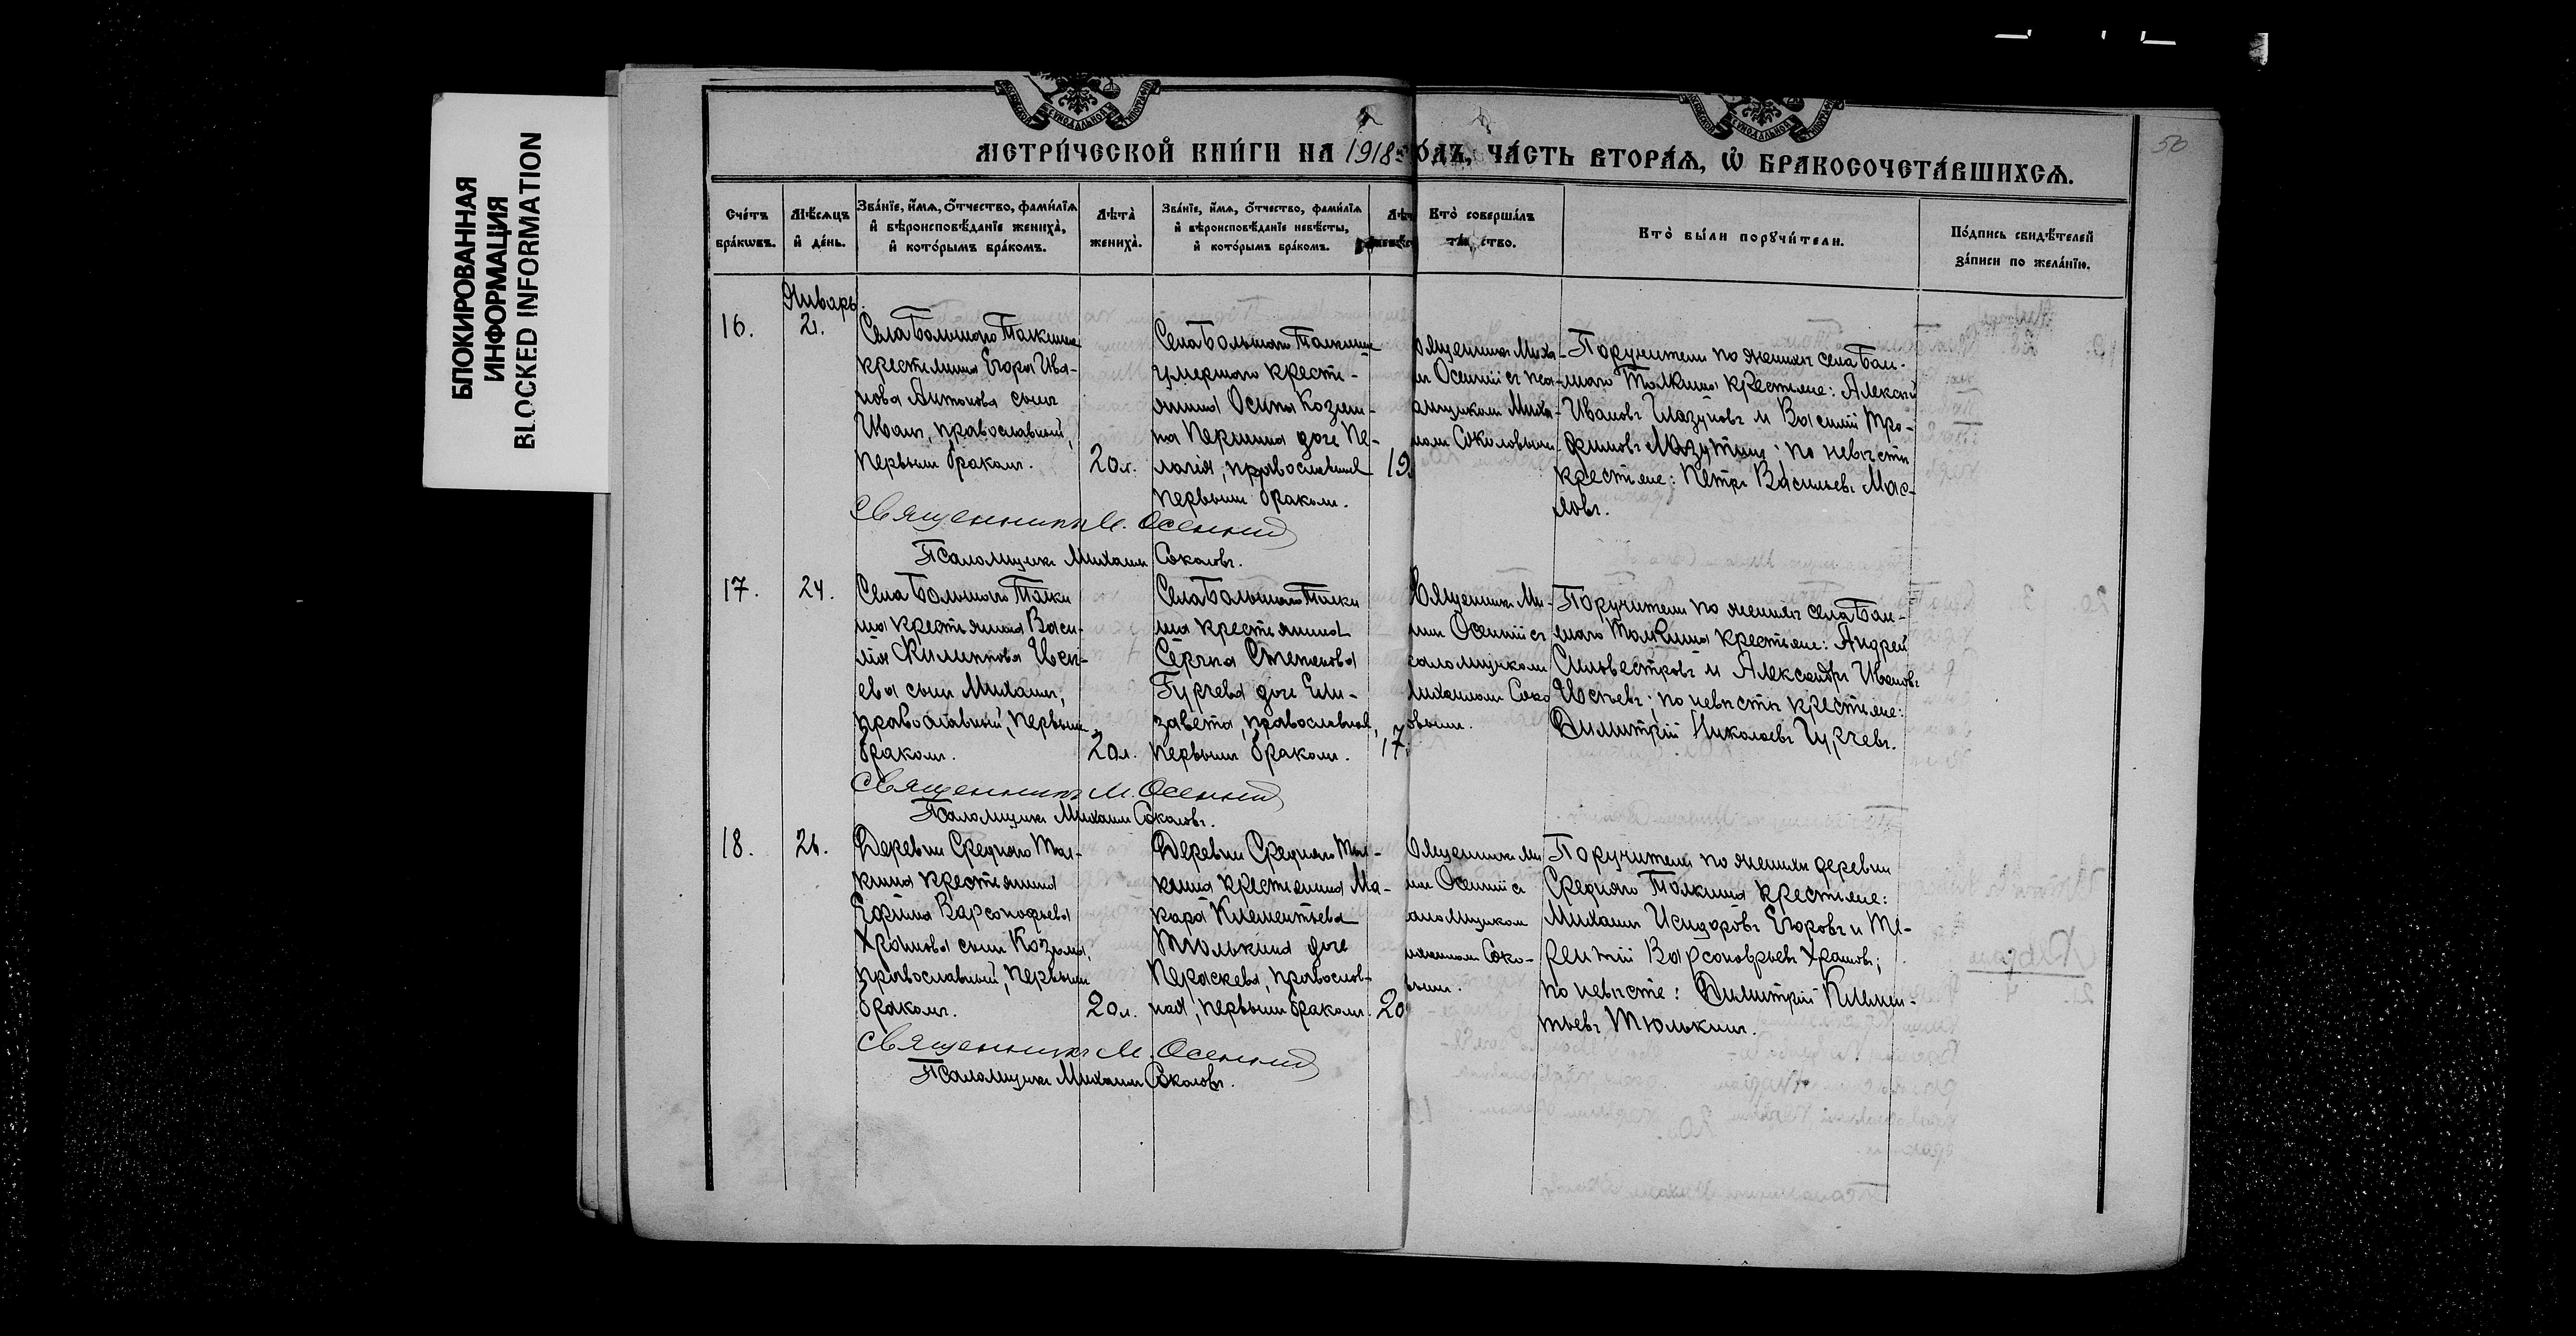 БЛОКИРОВАННАЯ
ИНФОРМАЦИЯ
BLOCKED INFORMATION
МЕТРИ́ЧЕСКОЙ КНИ́ГИ НА 1918 ГО́ДЪ, ЧА́СТЬ ВТОРА́Ѧ, Ѡ҆ БРАКОСОЧЕТА́ВШИХСѦ.
50
Сче́тъ
бра́кѡвъ.
Мѣ́сѧцъ
и҆ де́нь.
Зва́нїе, и҆́мѧ, ѻ҆́тчество, фами́лїѧ
и҆ вѣроисповѣ́данїе жениха̀,
и҆ кото́рымъ бра́комъ.
Лѣ́та̀
жениха̀.
Зва́нїе, и҆́мѧ, ѻ҆́тчество, фами́лїѧ
и҆ вѣроисповѣ́данїе невѣ́сты,
и҆ кото́рымъ бра́комъ.
Кто̀ соверша́лъ
та́ ство.
Кто̀ бы́ли порꙋчи́тели.
По́дпись свидѣ́телей
за́писи по жела́нїю.
Январь.
16.
21.
Села Большого Толкина
крестьянина Егора Ива-
нова Антонова сынъ
Иванъ, православный,
первымъ бракомъ.
20 л.
Села Большого Толкина
умершаго крести-
янина Осипа Козми-
на Першина дочь Пе-
лагія, православная
первымъ бракомъ.
19
священникъ Миха-
илъ Осенній съ пса-
ломщикомъ Миха-
иломъ Соколовымъ.
Поручители по женихѣ села Боль-
шого Толкина крестьяне: Алексѣй
Ивановъ Глазуновъ и Василій Тро-
фимовъ Мазутинъ; по невѣстѣ
крестьяне: Петръ Васильевъ Мас-
ловъ.
Священникъ М. Осенній
Псаломщикъ Михаилъ Соколовъ.
17.
24.
Села Большого Толки
на крестьянина Васи-
лія Филиппова Исч-
ева сынъ Михаилъ,
православный, первымъ
бракомъ.
20 л.
Села Большого Толки
на крестьянина
Сергѣя Степанова
Гурчева дочь Ели-
завета, православная,
первымъ бракомъ.
17.
священникъ Ми-
хаилъ Осенній съ
псаломщикомъ
Михаиломъ Соко
ловымъ.
Поручители по женихѣ села Боль-
шого Толкина крестьяне: Андрей
Сильвестровъ и Александръ Ивановъ
по невѣстѣ крестьяне:
Димитрій Николаевъ Гурчевъ.
Священникъ М. Осенній
Псаломщикъ Михаилъ Соколовъ.
18.
26.
Деревни Средняго Тол-
кина крестьянина
Ефима Варсонофьева
Храмова сынъ Козьма,
православный, первымъ
бракомъ.
20 л.
Деревни Средняго Тол-
кина крестьянина Ма-
кара Клементьева
Тюлькина дочь
Параскева, православ-
ная, первымъ бракомъ.
20
священникъ Ми
хаилъ Осенній съ
псаломщикомъ
Михаиломъ Соко-
ловымъ.
Поручители по женихѣ деревни
Средняго Толкина крестьяне:
Михаилъ Исидоровъ Егоровъ и Те-
рентій Варсонофьевъ Храмовъ;
по невѣсте: Димитрій Клемен-
тьевъ Тюлькинъ.
Священникъ М. Осенній
Псаломщикъ Михаилъ Соколовъ.